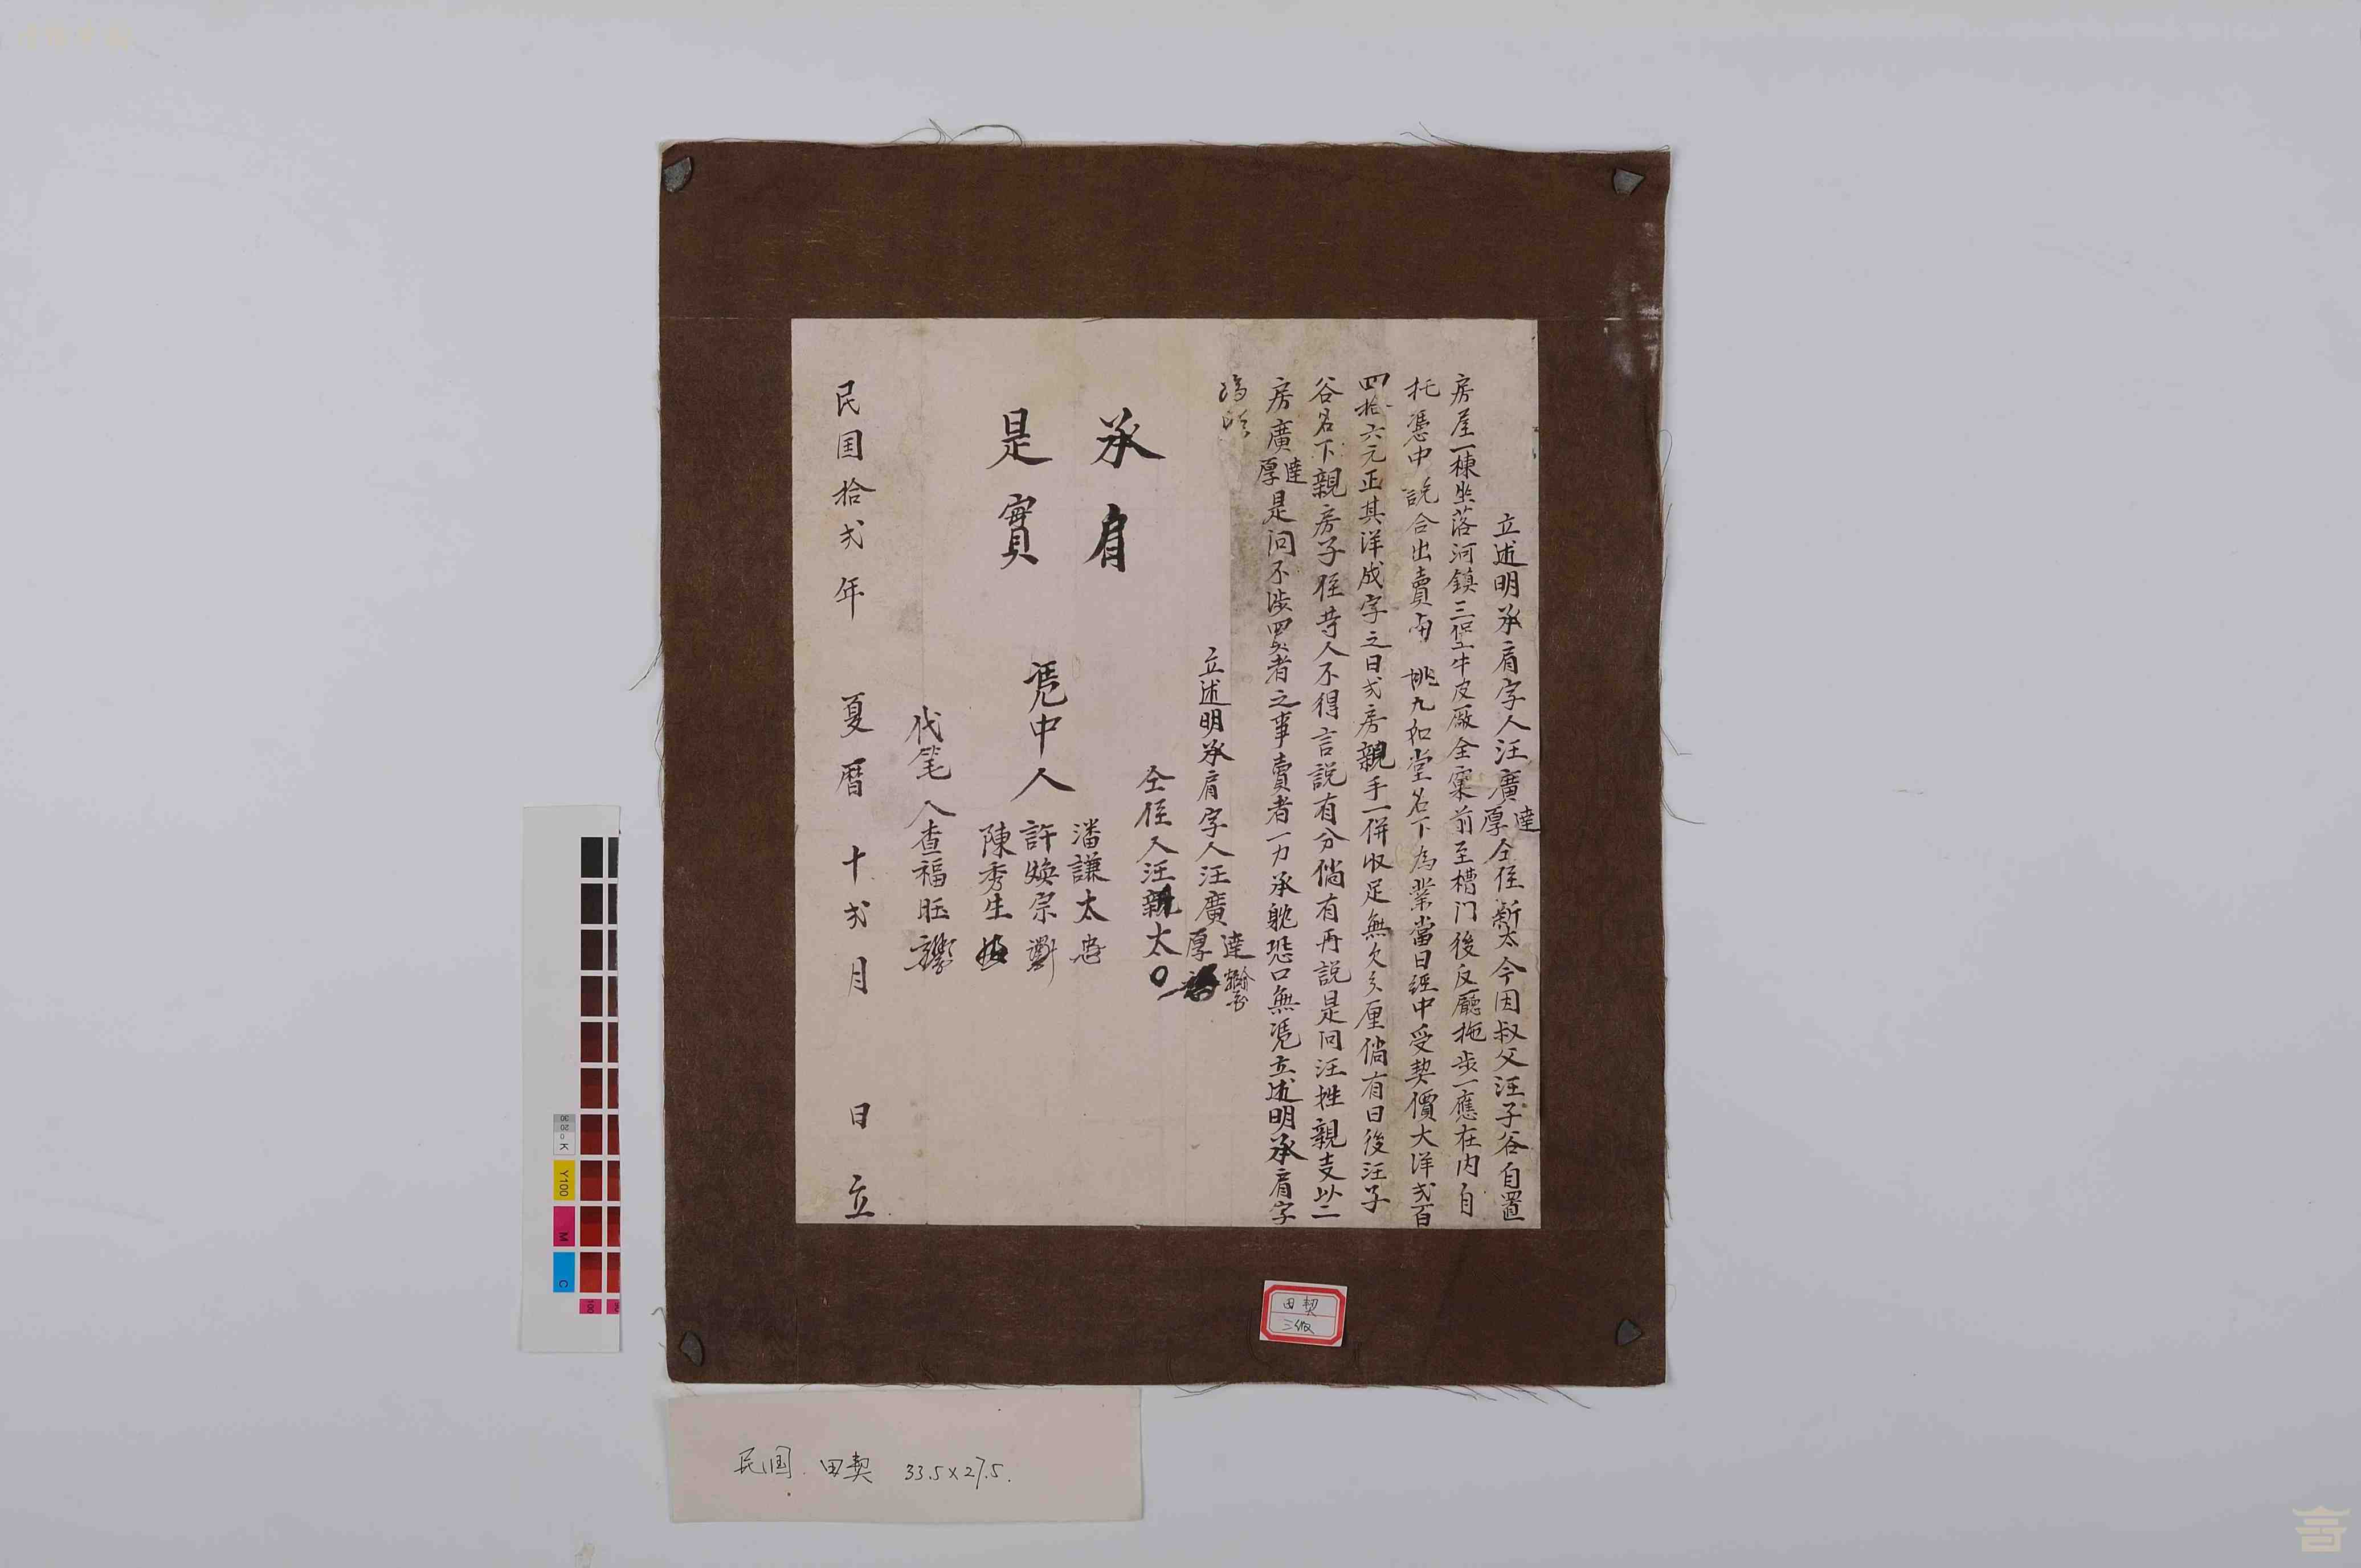 立述明承肩字人汪廣達厚仝侄新太今因叔父汪子谷自置
房屋一棟坐落河鎮三保牛皮厰仝窠前至槽门後反廳拖步一應在内自
托憑中說合出賣与 姚九如堂名下為業當日經中受契價大洋弍百
四拾六元正其洋成字之日弍房親手一併收足無欠分厘倘有日後汪子
谷名下親房子侄等人不得言說有分倘有再說是问汪姓親支以二
房廣達厚是问不涉買者之事賣者一力承躭恐口無憑立述明承肩字
立述明承肩字人汪廣達厚
仝侄人汪新太 〇
承肩
是實
憑中人
潘謙太
許焕宗
陳秀生
代笔人查福旺
民国拾弍年 夏曆十弍月 日立
田契
三级
民国. 田契 33.5×27.5.
Y100
M
C
K